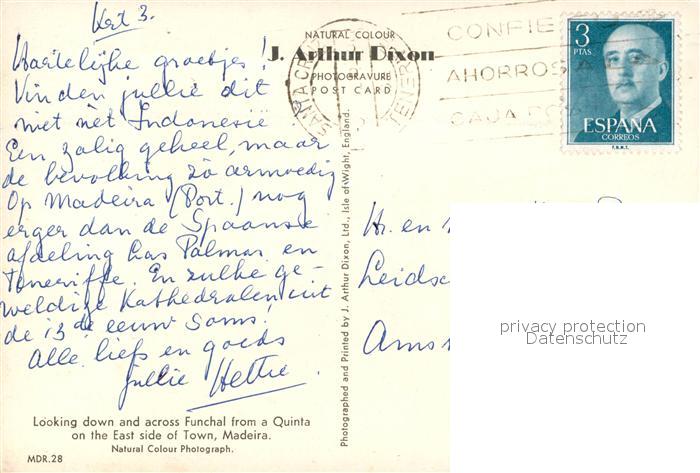 Krt 3.
Hartelijke groetjes!
Vinden jullie dit
niet nèt Indonesië
Een zalig geheel, maar
de bevolking zó armoedig
Op Madeira (Port.) nog
erger dan de Spaanse
afdeling Las Palmas en
Teneriffe. En zulke ge-
weldige Kathedralen uit
de 13de eeuw soms!
Alle liefs en goeds
jullie Hettie
Looking down and across Funchal from a Quinta
on the East side of Town, Madeira.
Natural Colour Photograph.
MDR.28
NATURAL COLOUR
J. Arthur Dixon
PHOTOGRAVURE
POST CARD
Photographed and Printed by J. Arthur Dixon, Ltd., Isle of Wight, England.
CONFIE
AHORROS
CAJA
3
PTAS
ESPAÑA
CORREOS
F.N.M.T.
Hr. en
Leidsc
Ams
privacy protection
Datenschutz